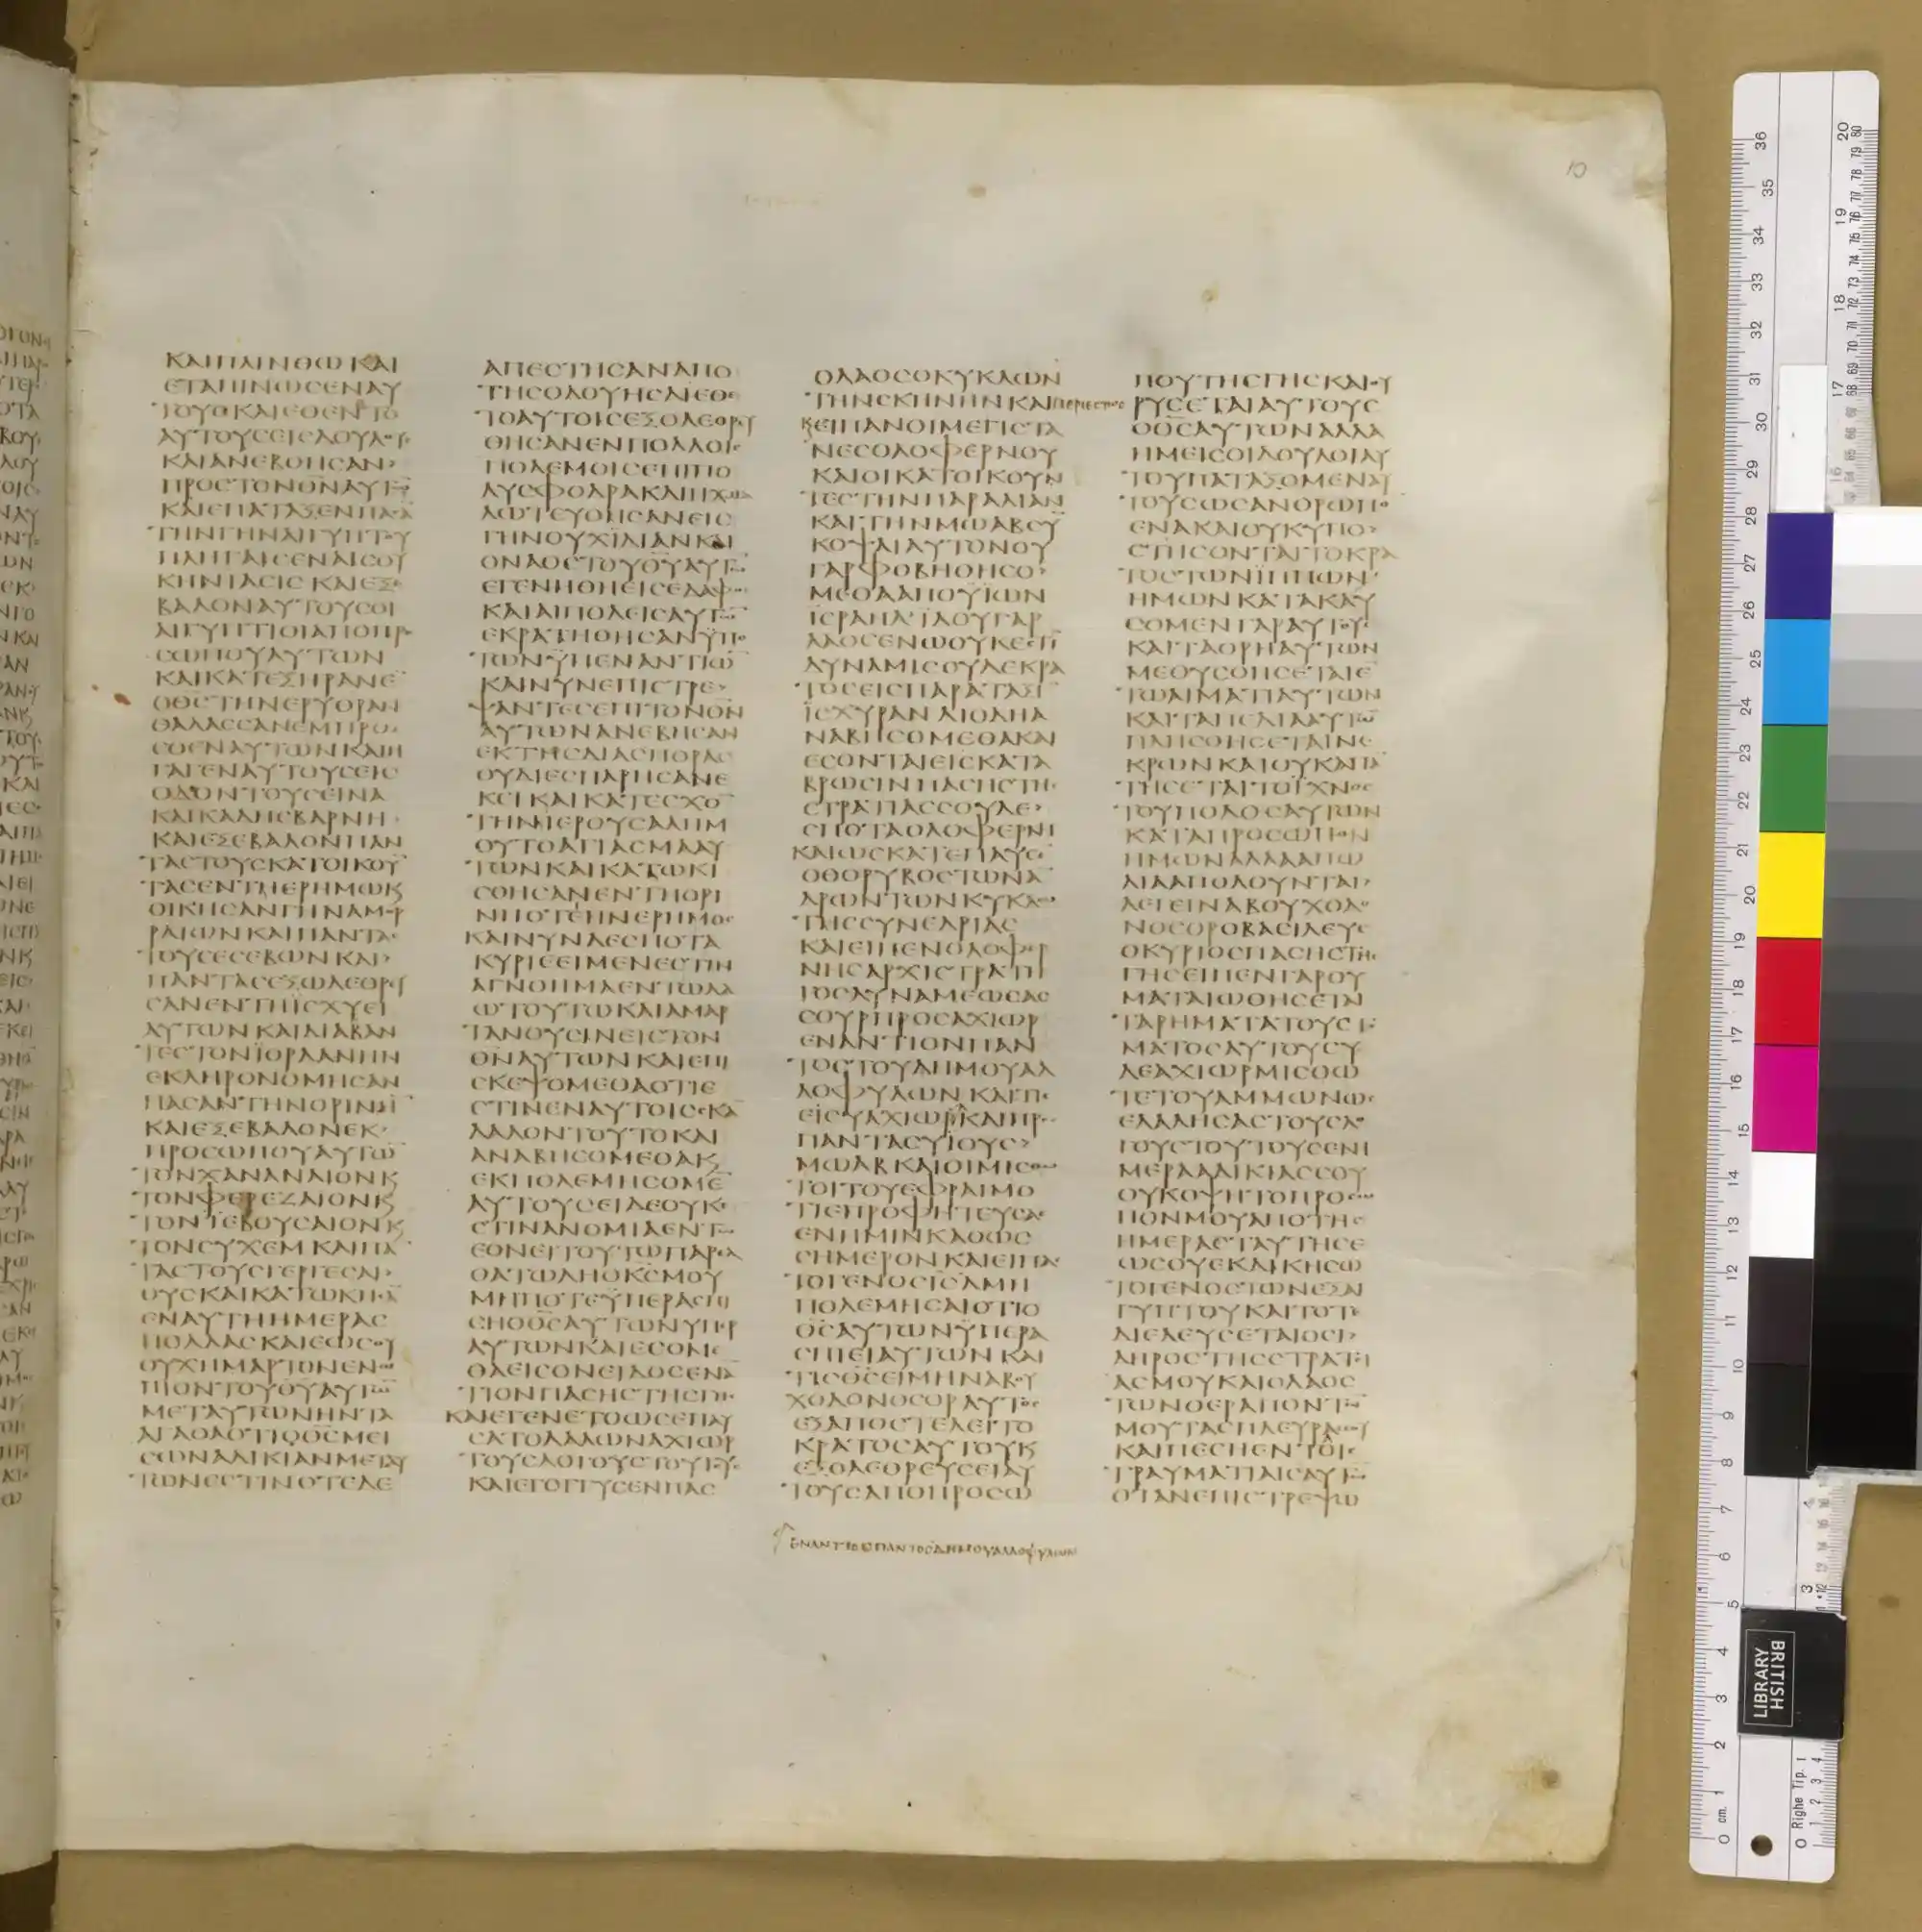 ΚΑΙΠΛΙΝΘΩΚΑΙ
ΕΤΑΠΙΝΩϹΕΝΑΥ
ΤΟΥϹΚΑΙΕΘΕΝΤΟ
ΑΥΤΟΥϹΕΙϹΔΟΥΛΟΥϹ
ΚΑΙΑΝΕΒΟΗϹΑΝ
ΠΡΟϹΤΟΝΘ̅Ν̅ΑΥΤΩ̅
ΚΑΙΕΠΑΤΑΞΕΝΠΑϹΑ̅
ΤΗΝΓΗΝΑΙΓΥΠΤΟΥ
ΠΛΗΓΑΙϹΕΝΑΙϹΟΥ
ΚΗΝΙΑϹΙϹΚΑΙΕΞΕ
ΒΑΛΟΝΑΥΤΟΥϹΟΙ
ΑΙΓΥΠΤΙΟΙΑΠΟΠΡΟ
ϹΩΠΟΥΑΥΤΩΝ
ΚΑΙΚΑΤΕΞΗΡΑΝΕ̅
ΟΘ̅Ϲ̅ΤΗΝΕΡΥΘΡΑΝ
ΘΑΛΑϹϹΑΝΕΜΠΡΟ
ϹΘΕΝΑΥΤΩΝΚΑΙΗ
ΓΑΓΕΝΑΥΤΟΥϹΕΙϹ
ΟΔΟΝΤΟΥϹΕΙΝΑ
ΚΑΙΚΑΔΗϹΒΑΡΝΗ
ΚΑΙΕΞΕΒΑΛΟΝΠΑΝ
ΤΑϹΤΟΥϹΚΑΤΟΙΚΟΥ̅
ΤΑϹΕΝΤΗΕΡΗΜΩΚϗ
ΟΙΚΗϹΑΝΓΗΝΑΜΟΡ
ΡΑΙΩΝΚΑΙΠΑΝΤΑϹ
ΤΟΥϹΕϹΕΒΩΝΚΑΙ
ΠΑΝΤΑϹΕΞΩΛΕΘΡΕΥ
ϹΑΝΕΝΤΗΪϹΧΥΕΙ
ΑΥΤΩΝΚΑΙΔΙΑΒΑΝ
ΤΕϹΤΟΝΪΟΡΔΑΝΗΝ
ΕΚΛΗΡΟΝΟΜΗϹΑΝ
ΠΑϹΑΝΤΗΝΟΡΙΝΗ̅
ΚΑΙΕΞΕΒΑΛΟΝΕΚ
ΠΡΟϹΩΠΟΥΑΥΤΩ̅
ΤΟΝΧΑΝΑΝΑΙΟΝϗ
ΤΟΝΦΕΡΕΖΑΙΟΝϗ
ΤΟΝΪΕΒΟΥϹΑΙΟΝϗ
ΤΟΝϹΥΧΕΜΚΑΙΠΑ̅
ΤΑϹΤΟΥϹΓΕΡΓΕϹΑΙ
ΟΥϹΚΑΙΚΑΤΩΚΗϹΑ̅
ΕΝΑΥΤΗΗΜΕΡΑϹ
ΠΟΛΛΑϹΚΑΙΕΩϹΟΥ
ΟΥΧΗΜΑΡΤΟΝΕΝΩ
ΠΙΟΝΤΟΥΘ̅Υ̅ΑΥΤΩ̅
ΜΕΤΑΥΤΩΝΗΝΤΑ
ΑΓΑΘΑΟΤΙΟΘ̅Ϲ̅ΜΕΙ
ϹΩΝΑΔΙΚΙΑΝΜΕΤΑΥ
ΤΩΝΕϹΤΙΝΟΤΕΔΕ
ΑΠΕϹΤΗϹΑΝΑΠΟ
ΤΗϹΟΔΟΥΗϹΔΙΕΘΕ
ΤΟΑΥΤΟΙϹΕΞΟΛΕΘΡΕΥ
ΘΗϹΑΝΕΝΠΟΛΛΟΙϹ
ΠΟΛΕΜΟΙϹΕΠΙΠΟ
ΛΥϹΦΟΔΡΑΚΑΙΗΧΜΑ
ΛΩΤΕΥΘΗϹΑΝΕΙϹ
ΓΗΝΟΥΧΪΔΙΑΝΚΑΙ
ΟΝΑΟϹΤΟΥΘ̅Υ̅ΑΥΤΩ̅
ΕΓΕΝΗΘΗΕΙϹΕΔΑΦΟϹ
ΚΑΙΑΙΠΟΛΕΙϹΑΥΤΩ̅
ΕΚΡΑΤΗΘΗϹΑΝΫΠΟ
ΤΩΝΫΠΕΝΑΝΤΙΩ̅
ΚΑΙΝΥΝΕΠΙϹΤΡΕ
ΨΑΝΤΕϹΕΠΙΤΟΝΘ̅Ν̅
ΑΥΤΩΝΑΝΕΒΗϹΑΝ
ΕΚΤΗϹΔΙΑϹΠΟΡΑϹ
ΟΥΔΙΕϹΠΑΡΗϹΑΝΕ
ΚΕΙΚΑΙΚΑΤΕϹΧΟ̅
ΤΗΝΪΕΡΟΥϹΑΛΗΜ
ΟΥΤΟΑΓΙΑϹΜΑΑΥ
ΤΩΝΚΑΙΚΑΤΩΚΙ
ϹΘΗϹΑΝΕΝΤΗΟΡΙ
ΝΗΟΤΕΗΝΕΡΗΜΟϹ
ΚΑΙΝΥΝΔΕϹΠΟΤΑ
ΚΥΡΙΕΕΙΜΕΝΕϹΤΙΝ
ΑΓΝΟΗΜΑΕΝΤΩΛΑ
ΩΤΟΥΤΩΚΑΙΑΜΑΡ
ΤΑΝΟΥϹΙΝΕΙϹΤΟΝ
Θ̅Ν̅ΑΥΤΩΝΚΑΙΕΠΙ
ϹΚΕΨΟΜΕΘΑΟΤΙΕ
ϹΤΙΝΕΝΑΥΤΟΙϹϹΚΑ̅
ΔΑΛΟΝΤΟΥΤΟΚΑΙ
ΑΝΑΒΗϹΟΜΕΘΑϗ
ΕΚΠΟΛΕΜΗϹΟΜΕ̅
ΑΥΤΟΥϹΕΙΔΕΟΥΚΕ
ϹΤΙΝΑΝΟΜΙΑΕΝΤΩ
ΕΘΝΕΙΤΟΥΤΩΠΑΡΕΛ
ΘΑΤΩΔΗΟΚ̅Ϲ̅ΜΟΥ
ΜΗΠΟΤΕΫΠΕΡΑϹΠΙ
ϹΗΟΘ̅Ϲ̅ΑΥΤΩΝΥΠΕΡ
ΑΥΤΩΝΚΑΙΕϹΟΜΕ
ΘΑΕΙϹΟΝΕΙΔΟϹΕΝΑ̅
ΤΙΟΝΠΑϹΗϹΤΗϹΓΗϹ
ΚΑΙΕΓΕΝΕΤΟΩϹΕΠΑΥ
ϹΑΤΟΛΑΛΩΝΑΧΙΩΡ
ΤΟΥϹΛΟΓΟΥϹΤΟΥΤΟΥϹ
ΚΑΙΕΓΟΓΓΥϹΕΝΠΑϹ
ΟΛΑΟϹΟΚΥΚΛΩΝ
ΤΗΝϹΚΗΝΗΝΚΑΙΠΕΡΙΕϹΤΩϹ
ϗΕΙΠΑΝΟΙΜΕΓΙϹΤΑ
ΝΕϹΟΛΟΦΕΡΝΟΥ
ΚΑΙΟΙΚΑΤΟΙΚΟΥΝ
ΤΕϹΤΗΝΠΑΡΑΛΙΑΝ
ΚΑΙΤΗΝΜΩΑΒϹΥ̅
ΚΟΨΑΙΑΥΤΟΝΟΥ
ΓΑΡΦΟΒΗΘΗϹΟ
ΜΕΘΑΑΠΟΥΪΩΝ
ΪϹΡΑΗΛΪΔΟΥΓΑΡ
ΛΑΟϹΕΝΩΟΥΚΕϹΤΙ̅
ΔΥΝΑΜΙϹΟΥΔΕΚΡΑ
ΤΟϹΕΙϹΠΑΡΑΤΑΞΙ̅
ΪϹΧΥΡΑΝΔΙΟΔΗΑ
ΝΑΒΗϹΟΜΕΘΑΚΑΙ
ΕϹΟΝΤΑΙΕΙϹΚΑΤΑ
ΒΡΩϹΙΝΠΑϹΗϹΤΗϹ
ϹΤΡΑΤΙΑϹϹΟΥΔΕ
ϹΠΟΤΑΟΛΟΦΕΡΝΗ
ΚΑΙΩϹΚΑΤΕΠΑΥϹΕ
ΟΘΟΡΥΒΟϹΤΩΝΑ̅
ΔΡΩΝΤΩΝΚΥΚΛΩ
ΤΗϹϹΥΝΕΔΡΙΑϹ
ΚΑΙΕΙΠΕΝΟΛΟΦΕΡ
ΝΗϹΑΡΧΙϹΤΡΑΤΗ
ΓΟϹΔΥΝΑΜΕΩϹΑϹ
ϹΟΥΡΠΡΟϹΑΧΙΩΡ
ΕΝΑΝΤΙΟΝΠΑΝ
ΤΟϹΤΟΥΔΗΜΟΥΑΛ
ΛΟΦΥΛΩΝΚΑΙΤΙϹ
ΕΙϹΥΑΧΙΩΡΚΑΙΠΡΟϹ
ΠΑΝΤΑϹΥΪΟΥϹ
ΜΩΑΒΚΑΙΟΙΜΙϹΘΩ
ΤΟΙΤΟΥΕΦΡΑΙΜΟ
ΤΙΕΠΡΟΦΗΤΕΥϹΑϹ
ΕΝΗΜΙΝΚΑΘΩϹ
ϹΗΜΕΡΟΝΚΑΙΕΙΠΑϹ
ΤΟΓΕΝΟϹΙϹΛΜΗ
ΠΟΛΕΜΗϹΑΙΟΤΙΟ
Θ̅Ϲ̅ΑΥΤΩΝΫΠΕΡΑ
ϹΠΙΕΙΑΥΤΩΝΚΑΙ
ΤΙϹΘ̅Ϲ̅ΕΙΜΗΝΑΒΟΥ
ΧΟΔΟΝΟϹΟΡΑΥΤΟϹ
ΕΞΑΠΟϹΤΕΛΕΙΤΟ
ΚΡΑΤΟϹΑΥΤΟΥϗ
ΕΞΟΛΕΘΡΕΥϹΕΙΑΥ
ΤΟΥϹΑΠΟΠΡΟϹΩ
ΕΝΑΝΤΙΟΝΠΑΝΤΟϹΔΗΜΟΥΑΛΛΟΦΥΛΩΝ
ΠΟΥΤΗϹΓΗϹΚΑΙΟΥ
ΡΥϹΕΤΑΙΑΥΤΟΥϹ
ΟΘ̅Ϲ̅ΑΥΤΩΝΑΛΛΑ
ΗΜΕΙϹΟΙΔΟΥΛΟΙΑΥ
ΤΟΥΠΑΤΑΞΟΜΕΝΑΥ
ΤΟΥϹΩϹΑΝΘΡΩΠΟ
ΕΝΑΚΑΙΟΥΚΥΠΟ
ϹΤΗϹΟΝΤΑΙΤΟΚΡΑ
ΤΟϹΤΩΝΪΠΠΩΝ
ΗΜΩΝΚΑΤΑΚΑΥ
ϹΟΜΕΝΓΑΡΑΥΤΟΥϹ
ΚΑΙΤΑΟΡΗΑΥΤΩΝ
ΜΕΘΥϹΘΗϹΕΤΑΙΕ̅
ΤΩΑΙΜΑΤΙΑΥΤΩΝ
ΚΑΙΤΑΠΕΔΙΑΑΥΤΩ̅
ΠΛΗϹΘΗϹΕΤΑΙΝΕ
ΚΡΩΝΚΑΙΟΥΚΑΝΤΙ
ΤΗϹΕΤΑΙΤΟΪΧΝΟϹ
ΤΟΥΠΟΔΟϹΑΥΤΩΝ
ΚΑΤΑΠΡΟϹΩΠΟΝ
ΗΜΩΝΑΛΛΑΑΠΩ
ΛΙΑΑΠΟΛΟΥΝΤΑΙ
ΛΕΓΕΙΝΑΒΟΥΧΟΔΟ
ΝΟϹΟΡΟΒΑϹΙΛΕΥϹ
ΟΚΥΡΙΟϹΠΑϹΗϹΤΗϹ
ΓΗϹΕΙΠΕΝΓΑΡΟΥ
ΜΑΤΑΙΩΘΗϹΕΤΑΙ
ΤΑΡΗΜΑΤΑΤΟΥϹΤΟ
ΜΑΤΟϹΑΥΤΟΥϹΥ
ΔΕΑΧΙΩΡΜΙϹΘΩ
ΤΕΤΟΥΑΜΜΩΝΟϹ
ΕΛΑΛΗϹΑϹΤΟΥϹΛΟ
ΓΟΥϹΤΟΥΤΟΥϹΕΝΗ
ΜΕΡΑΑΔΙΚΙΑϹϹΟΥ
ΟΥΚΟΨΗΤΟΠΡΟϹΩ
ΠΟΝΜΟΥΑΠΟΤΗϹ
ΗΜΕΡΑϹΤΑΥΤΗϹΕ
ΩϹΟΥΕΚΔΙΚΗϹΩ
ΤΟΓΕΝΟϹΤΩΝΕΞΑΙ
ΓΥΠΤΟΥΚΑΙΤΟΤΕ
ΔΙΕΛΕΥϹΕΤΑΙΟϹΙ
ΔΗΡΟϹΤΗϹϹΤΡΑΤΕΙ
ΑϹΜΟΥΚΑΙΟΛΑΟϹ
ΤΩΝΘΕΡΑΠΟΝΤΩ̅
ΜΟΥΤΑϹΠΛΕΥΡΑϹϹΟΥ
ΚΑΙΠΕϹΗΕΝΤΟΙϹ
ΤΡΑΥΜΑΤΙΑΙϹΑΥΤΩ̅
ΟΤΑΝΕΠΙϹΤΡΕΨΩ
10
BRITISH
LIBRARY